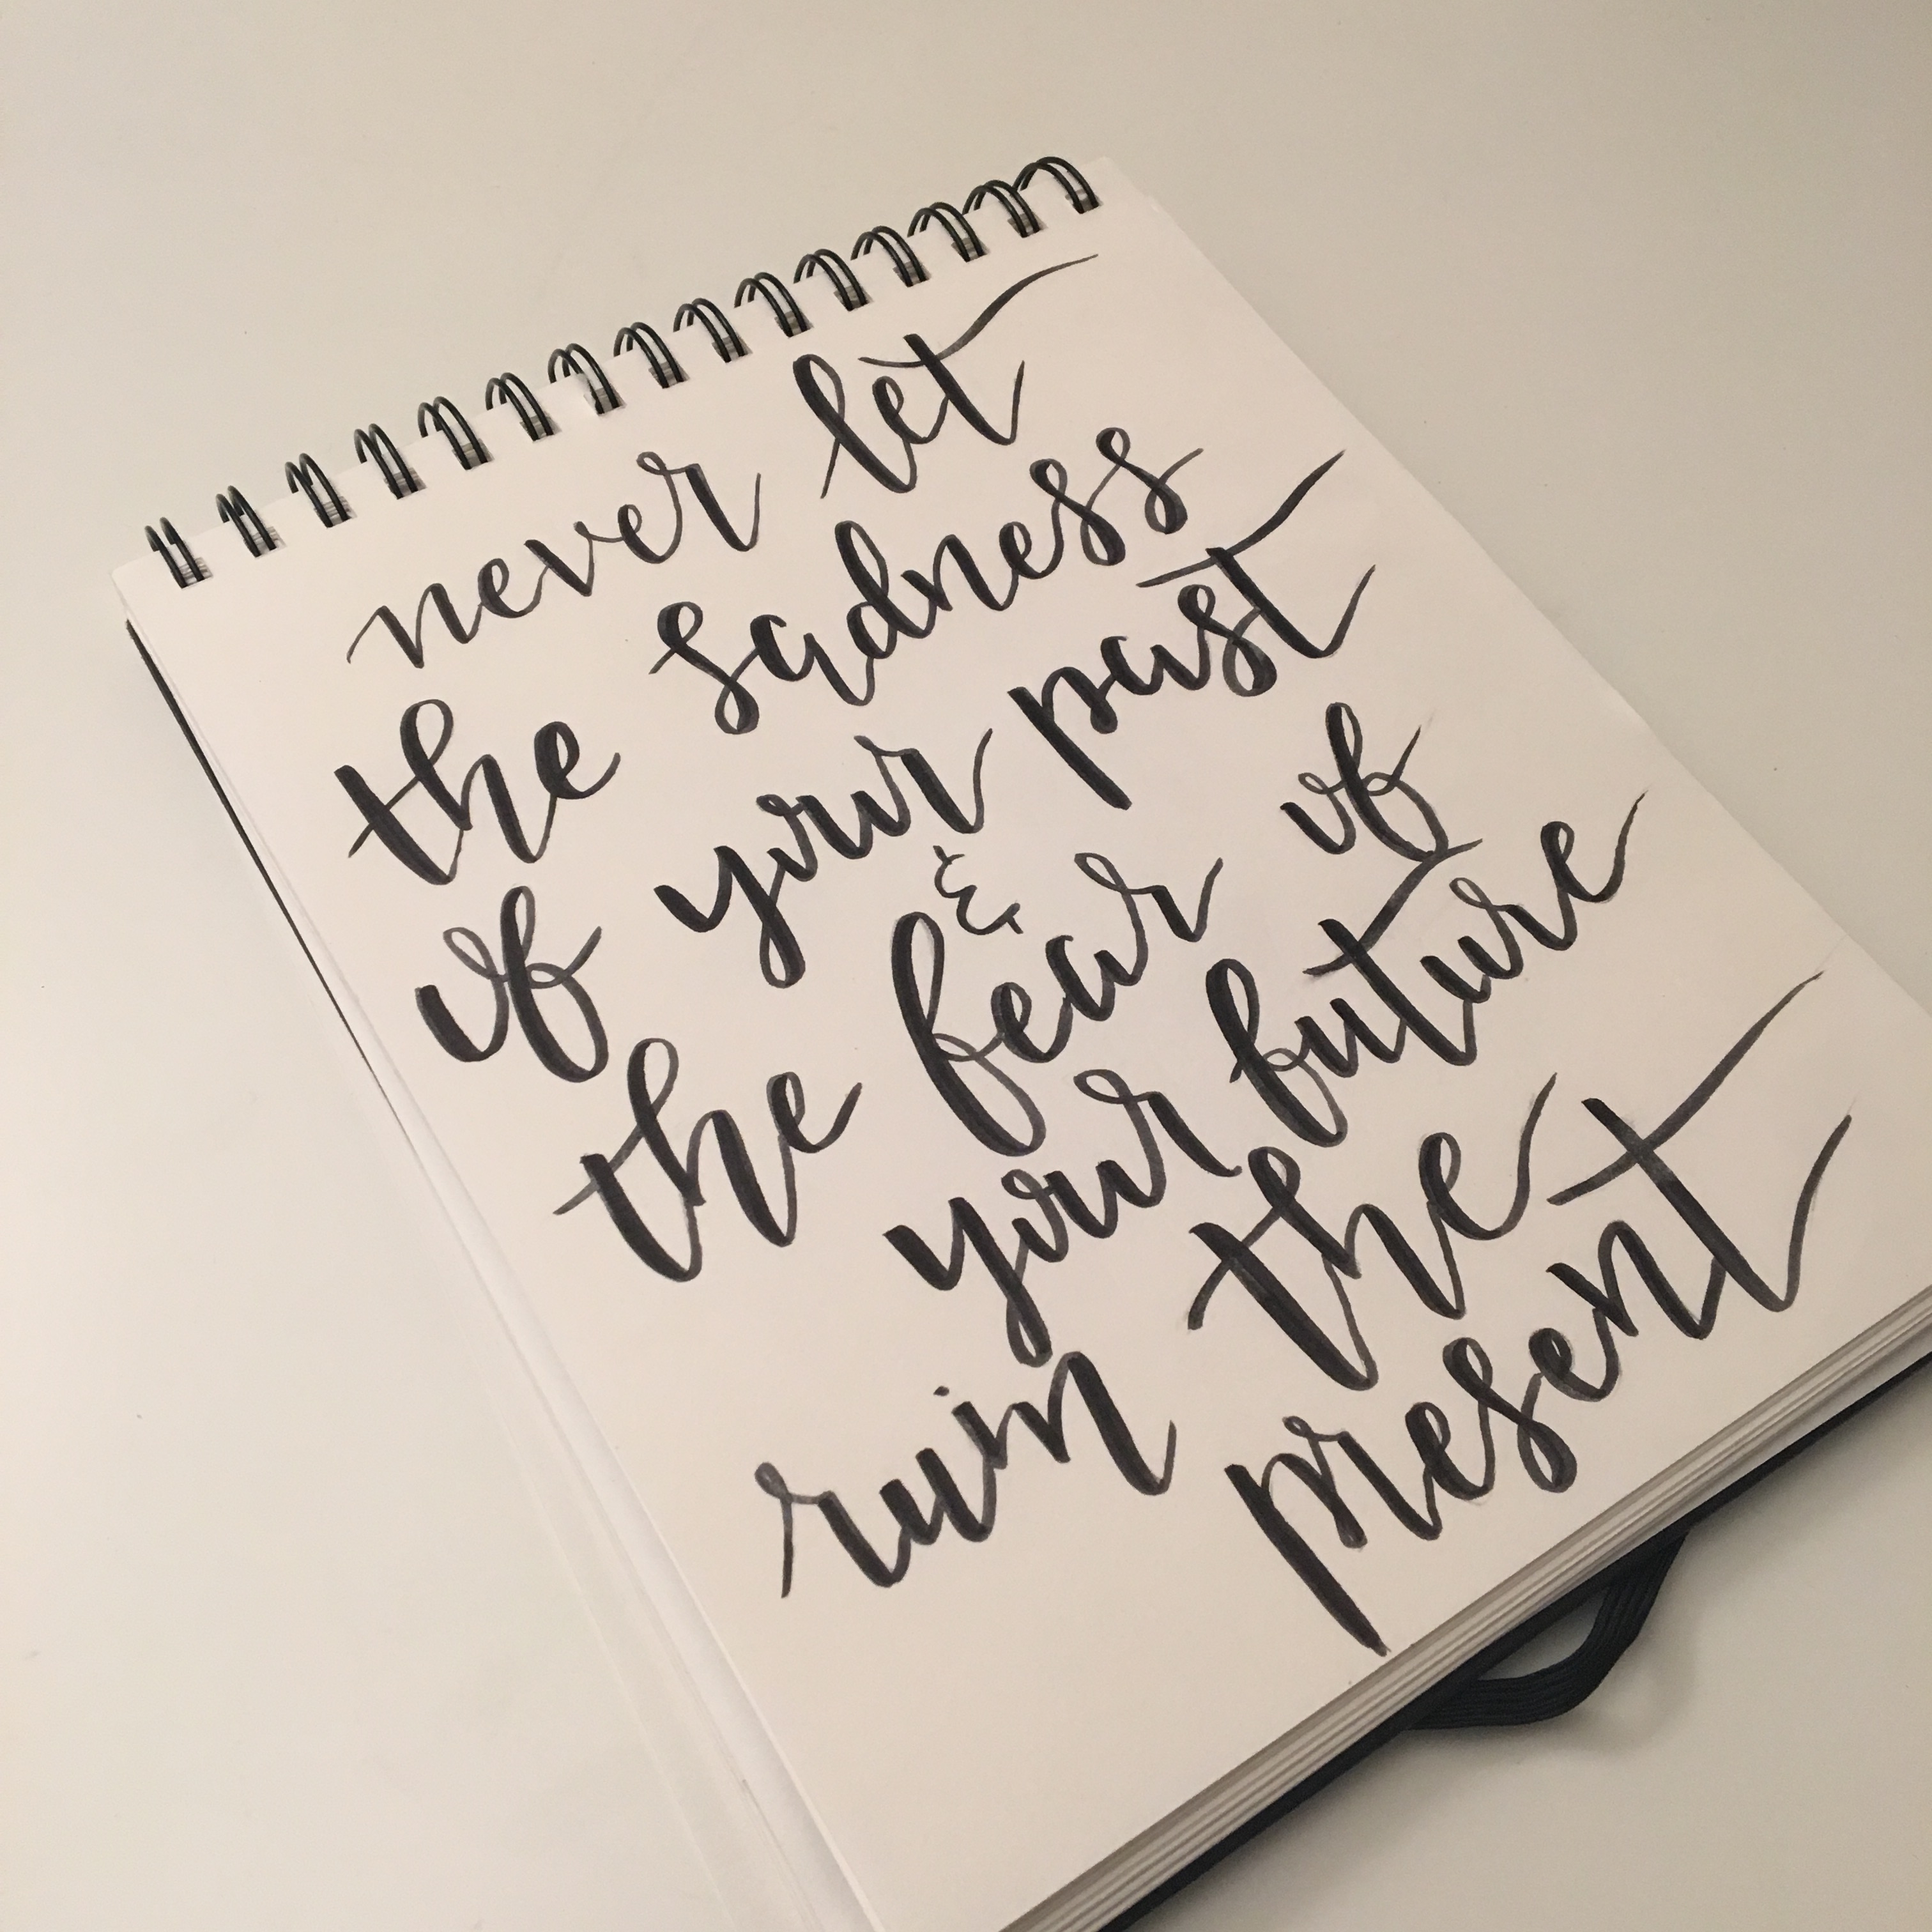 never let
the sadness
of your past
&
the fear of
your future
ruin the
present